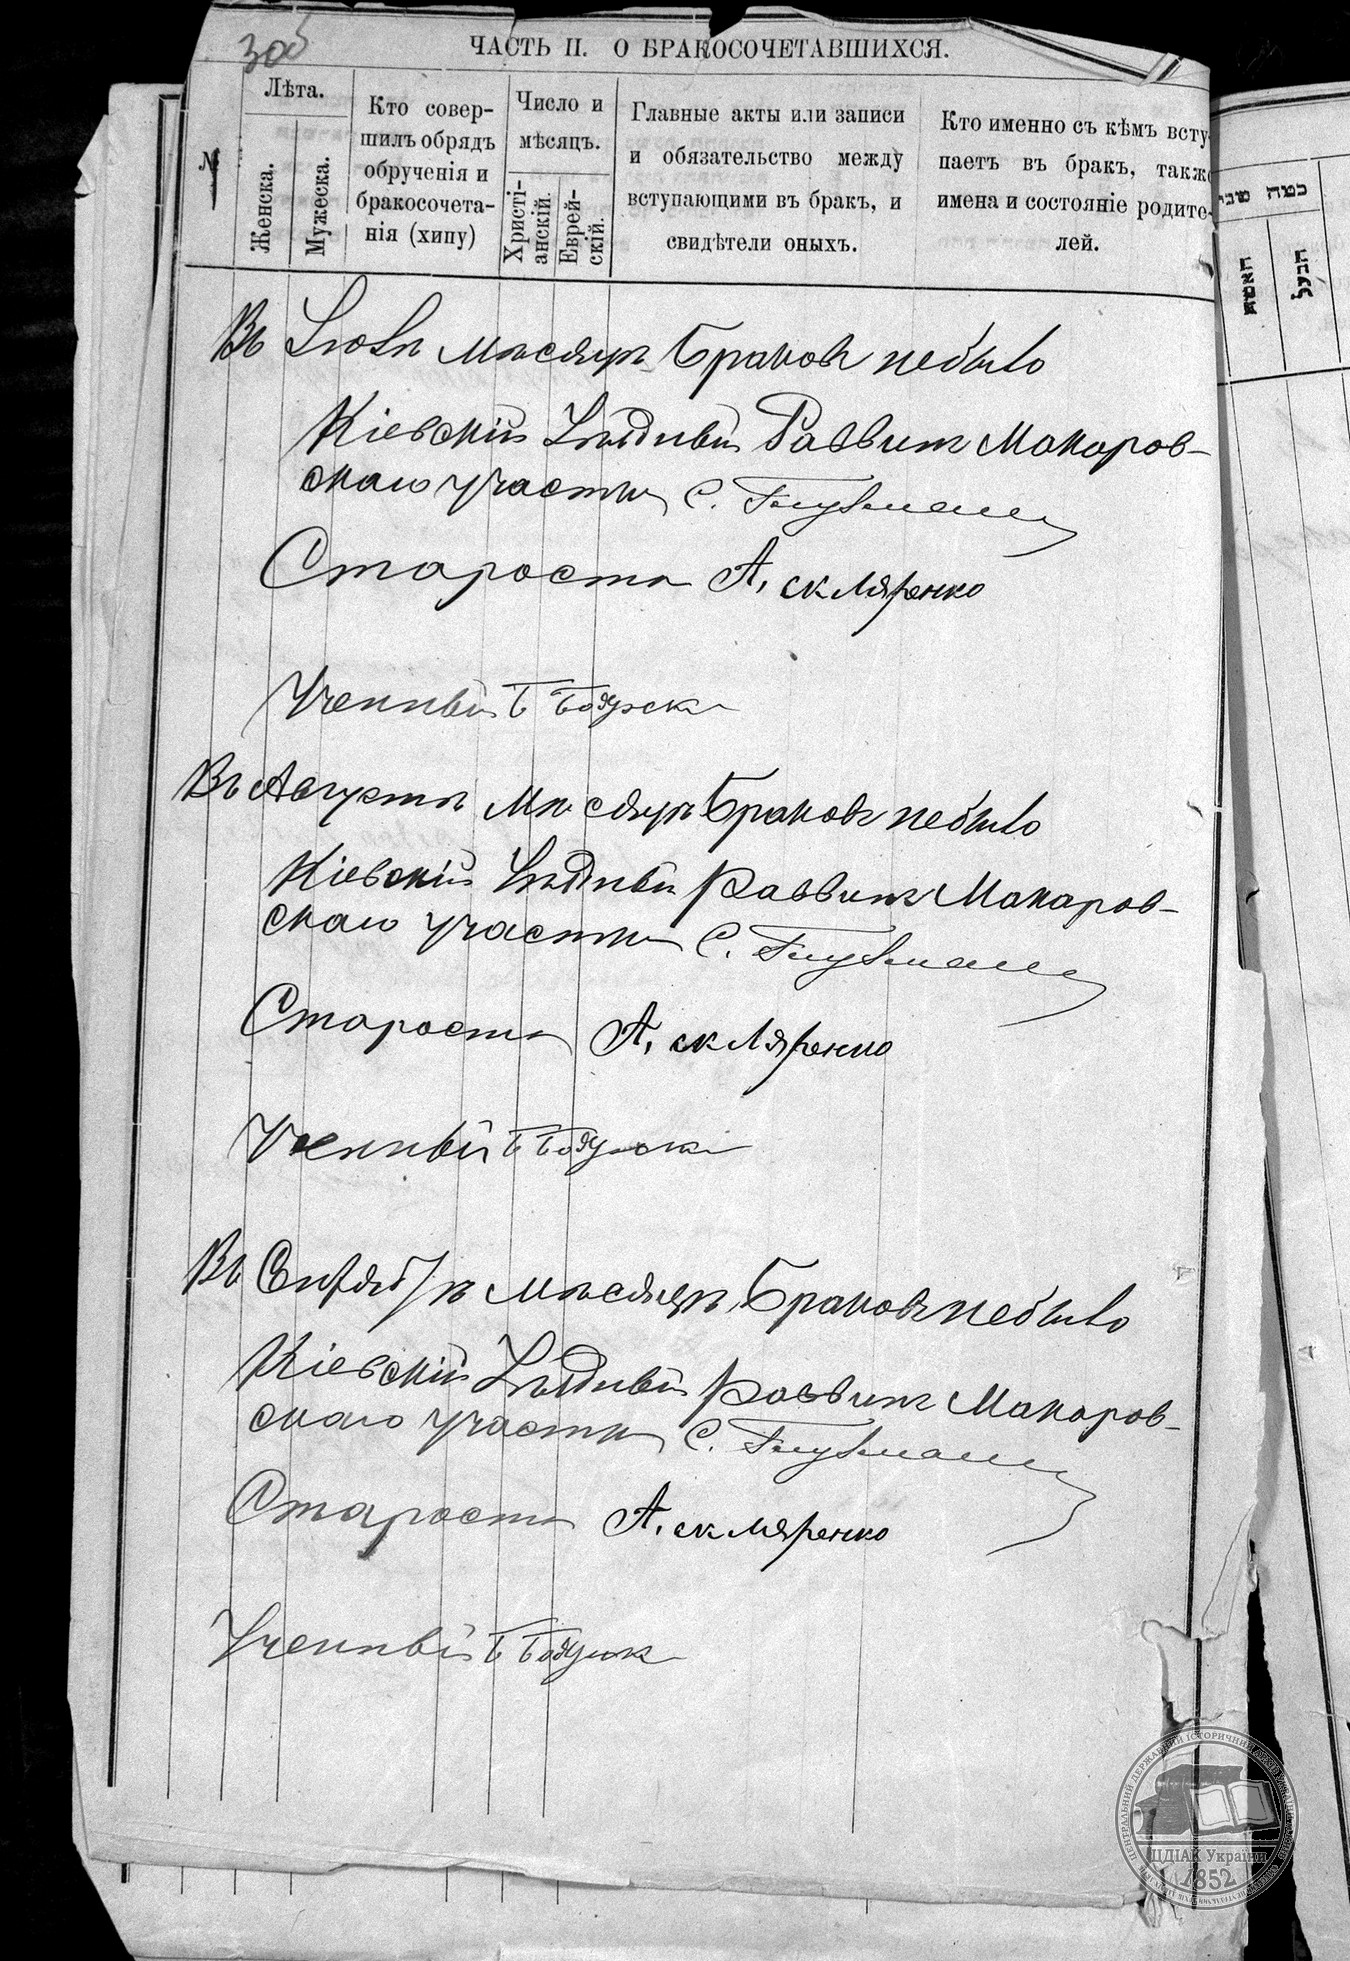 30об
ЧАСТЬ II. О БРАКОСОЧЕТАВШИХСЯ.
№
Лѣта.
Женска.
Мужеска.
Кто совер-
шилъ обрядъ
обрученія и
бракосочета-
нія (хипу)
Число и
мѣсяцъ.
Христі-
анскій.
Еврей-
скій.
Главные акты или записи
и обязательство между
вступающими въ бракъ, и
свидѣтели оныхъ.
Кто именно съ кѣмъ всту-
паетъ въ бракъ, также
имена и состояніе родите-
лей.
כמה שני
האשה
הבעל
Въ Іюлѣ мѣсяцѣ Браковъ небыло
Кіевскій Уѣздный Раввинъ Макаров-
скаго участка С.
Староста А. Скляренко
Ученный Б
Въ Августѣ мѣсяцѣ Браковъ небыло
Кіевскій Уѣздный Раввинъ Макаров-
скаго участка С.
Староста А. Скляренко
Ученный Б
Въ Сентябрѣ мѣсяцѣ Браковъ небыло
Кіевскій Уѣздный Раввинъ Макаров-
скаго участка С.
Староста А. Скляренко
Ученный Б
ЦЕНТРАЛЬНИЙ ДЕРЖАВНИЙ ІСТОРИЧНИЙ АРХІВ УКРАЇНИ
ЦДІАК України
1852